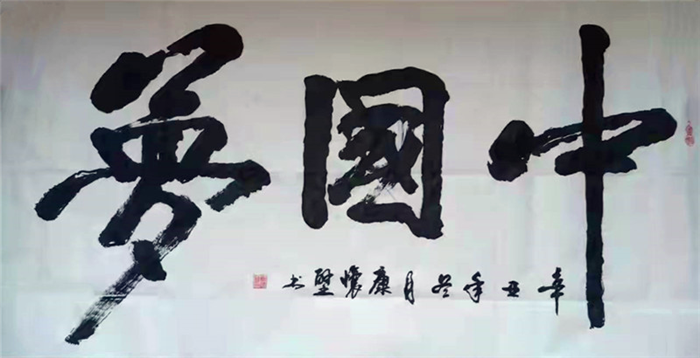 中國夢
辛丑年冬月康懷堅书